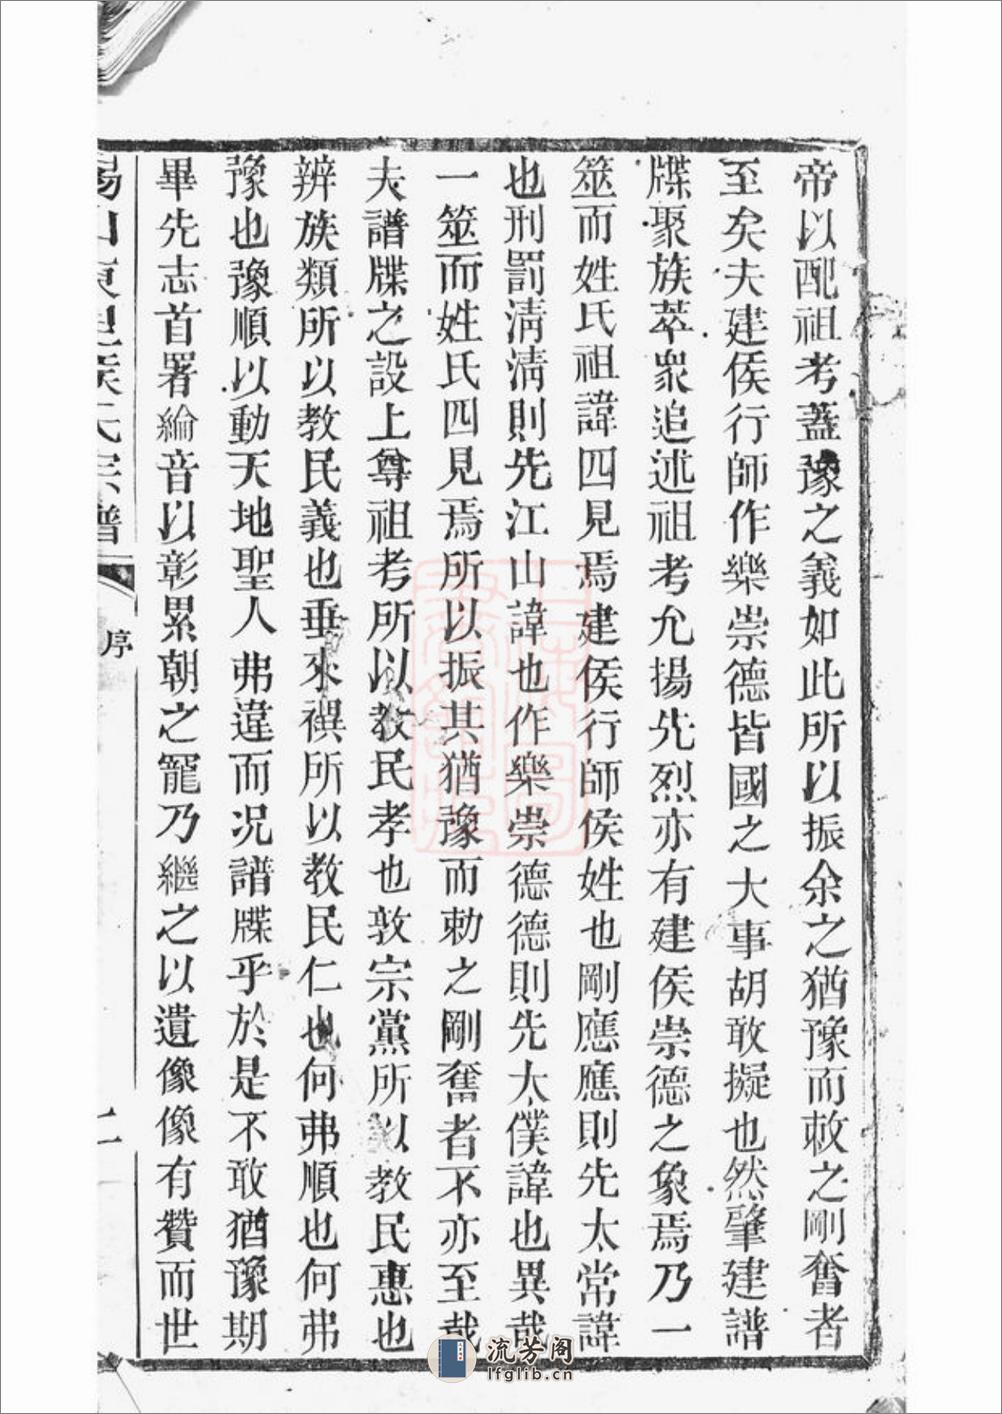 帝以配祖考蓋豫之義如此所以振余之猶豫而敕之剛奮者
至矣夫建侯行師作樂崇德皆國之大事胡敢擬也然肇建譜
牒聚族萃衆追述祖考允揚先烈亦有建侯崇德之象焉乃一
筮而姓氏祖諱四見焉建侯行師侯姓也剛應應則先太常諱
也刑罰清清則先江山諱也作樂崇德德則先太僕諱也異哉
一筮而姓氏四見焉所以振其猶豫而勅之剛奮者不亦至哉
夫譜牒之設上尊祖考所以教民孝也敦宗黨所以教民惠也
辨族類所以教民義也垂來禩所以教民仁也何弗順也何弗
豫也豫順以動天地聖人弗違而况譜牒乎於是不敢猶豫期
畢先志首署綸音以彰累朝之寵乃繼之以遺像像有贊而世
錫山東里侯氏宗譜
序
流芳阁
lfglib.cn